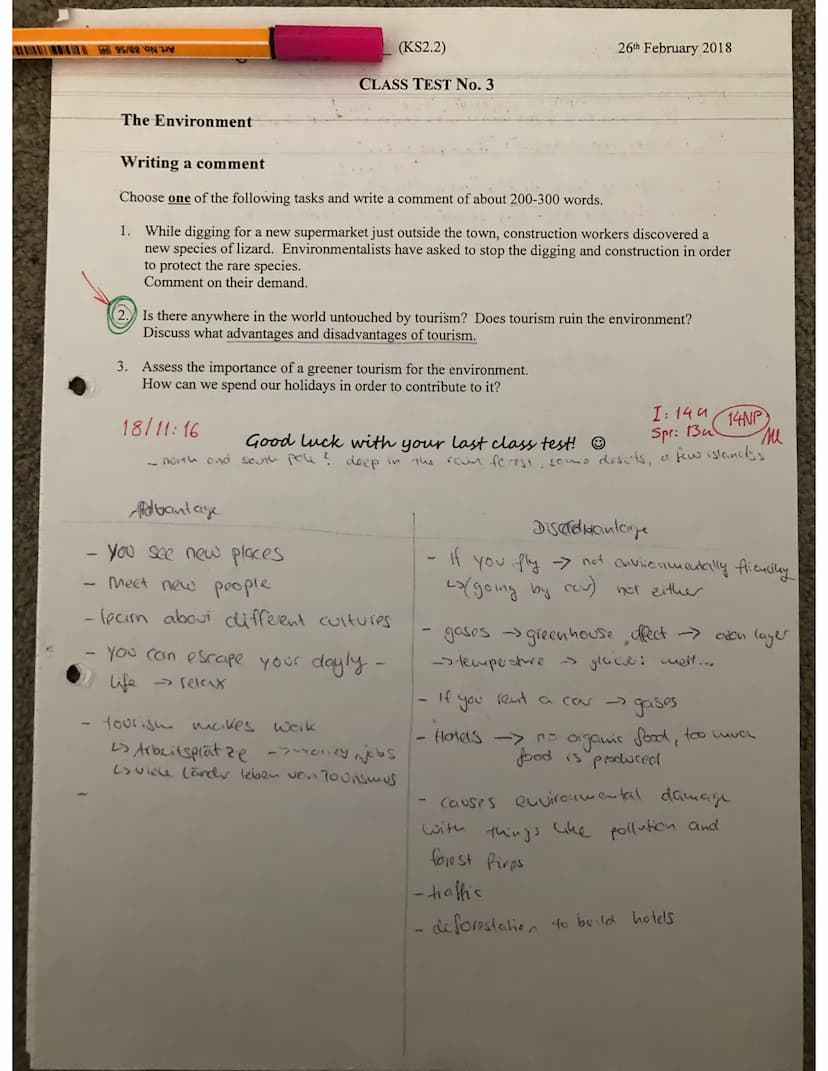 Art. No. 88/56
(KS2.2) 26th February 2018
CLASS TEST No. 3
The Environment
Writing a comment
Choose one of the following tasks and write a comment of about 200-300 words.
1. While digging for a new supermarket just outside the town, construction workers discovered a
new species of lizard. Environmentalists have asked to stop the digging and construction in order
to protect the rare species.
Comment on their demand.
2. Is there anywhere in the world untouched by tourism? Does tourism ruin the environment?
Discuss what advantages and disadvantages of tourism.
3. Assess the importance of a greener tourism for the environment.
How can we spend our holidays in order to contribute to it?
18/11:16
I: 14 14NP
Spr: 13
Good luck with your last class test! ☺
- north and south pole? deep in the rain forest, some deserts, a few islands
Advantage
- you see new places
- Meet new people
- learn about different cultures
- you can escape your dayly -
life → relax
- tourism makes work
↳ Arbeitsplätze → money, jobs
↳ viele Länder leben von Tourismus
-
Disadvantage
- If you fly → not environmentally friendly
↳ (going by car) not either
- gases → greenhouse effect → ozon layer
→ temperature → melt...
- If you rent a car → gases
- Hotels → no organic food, too much
food is produced
- causes environmental damage
with things like pollution and
forest fires
- traffic
- deforestation to build hotels